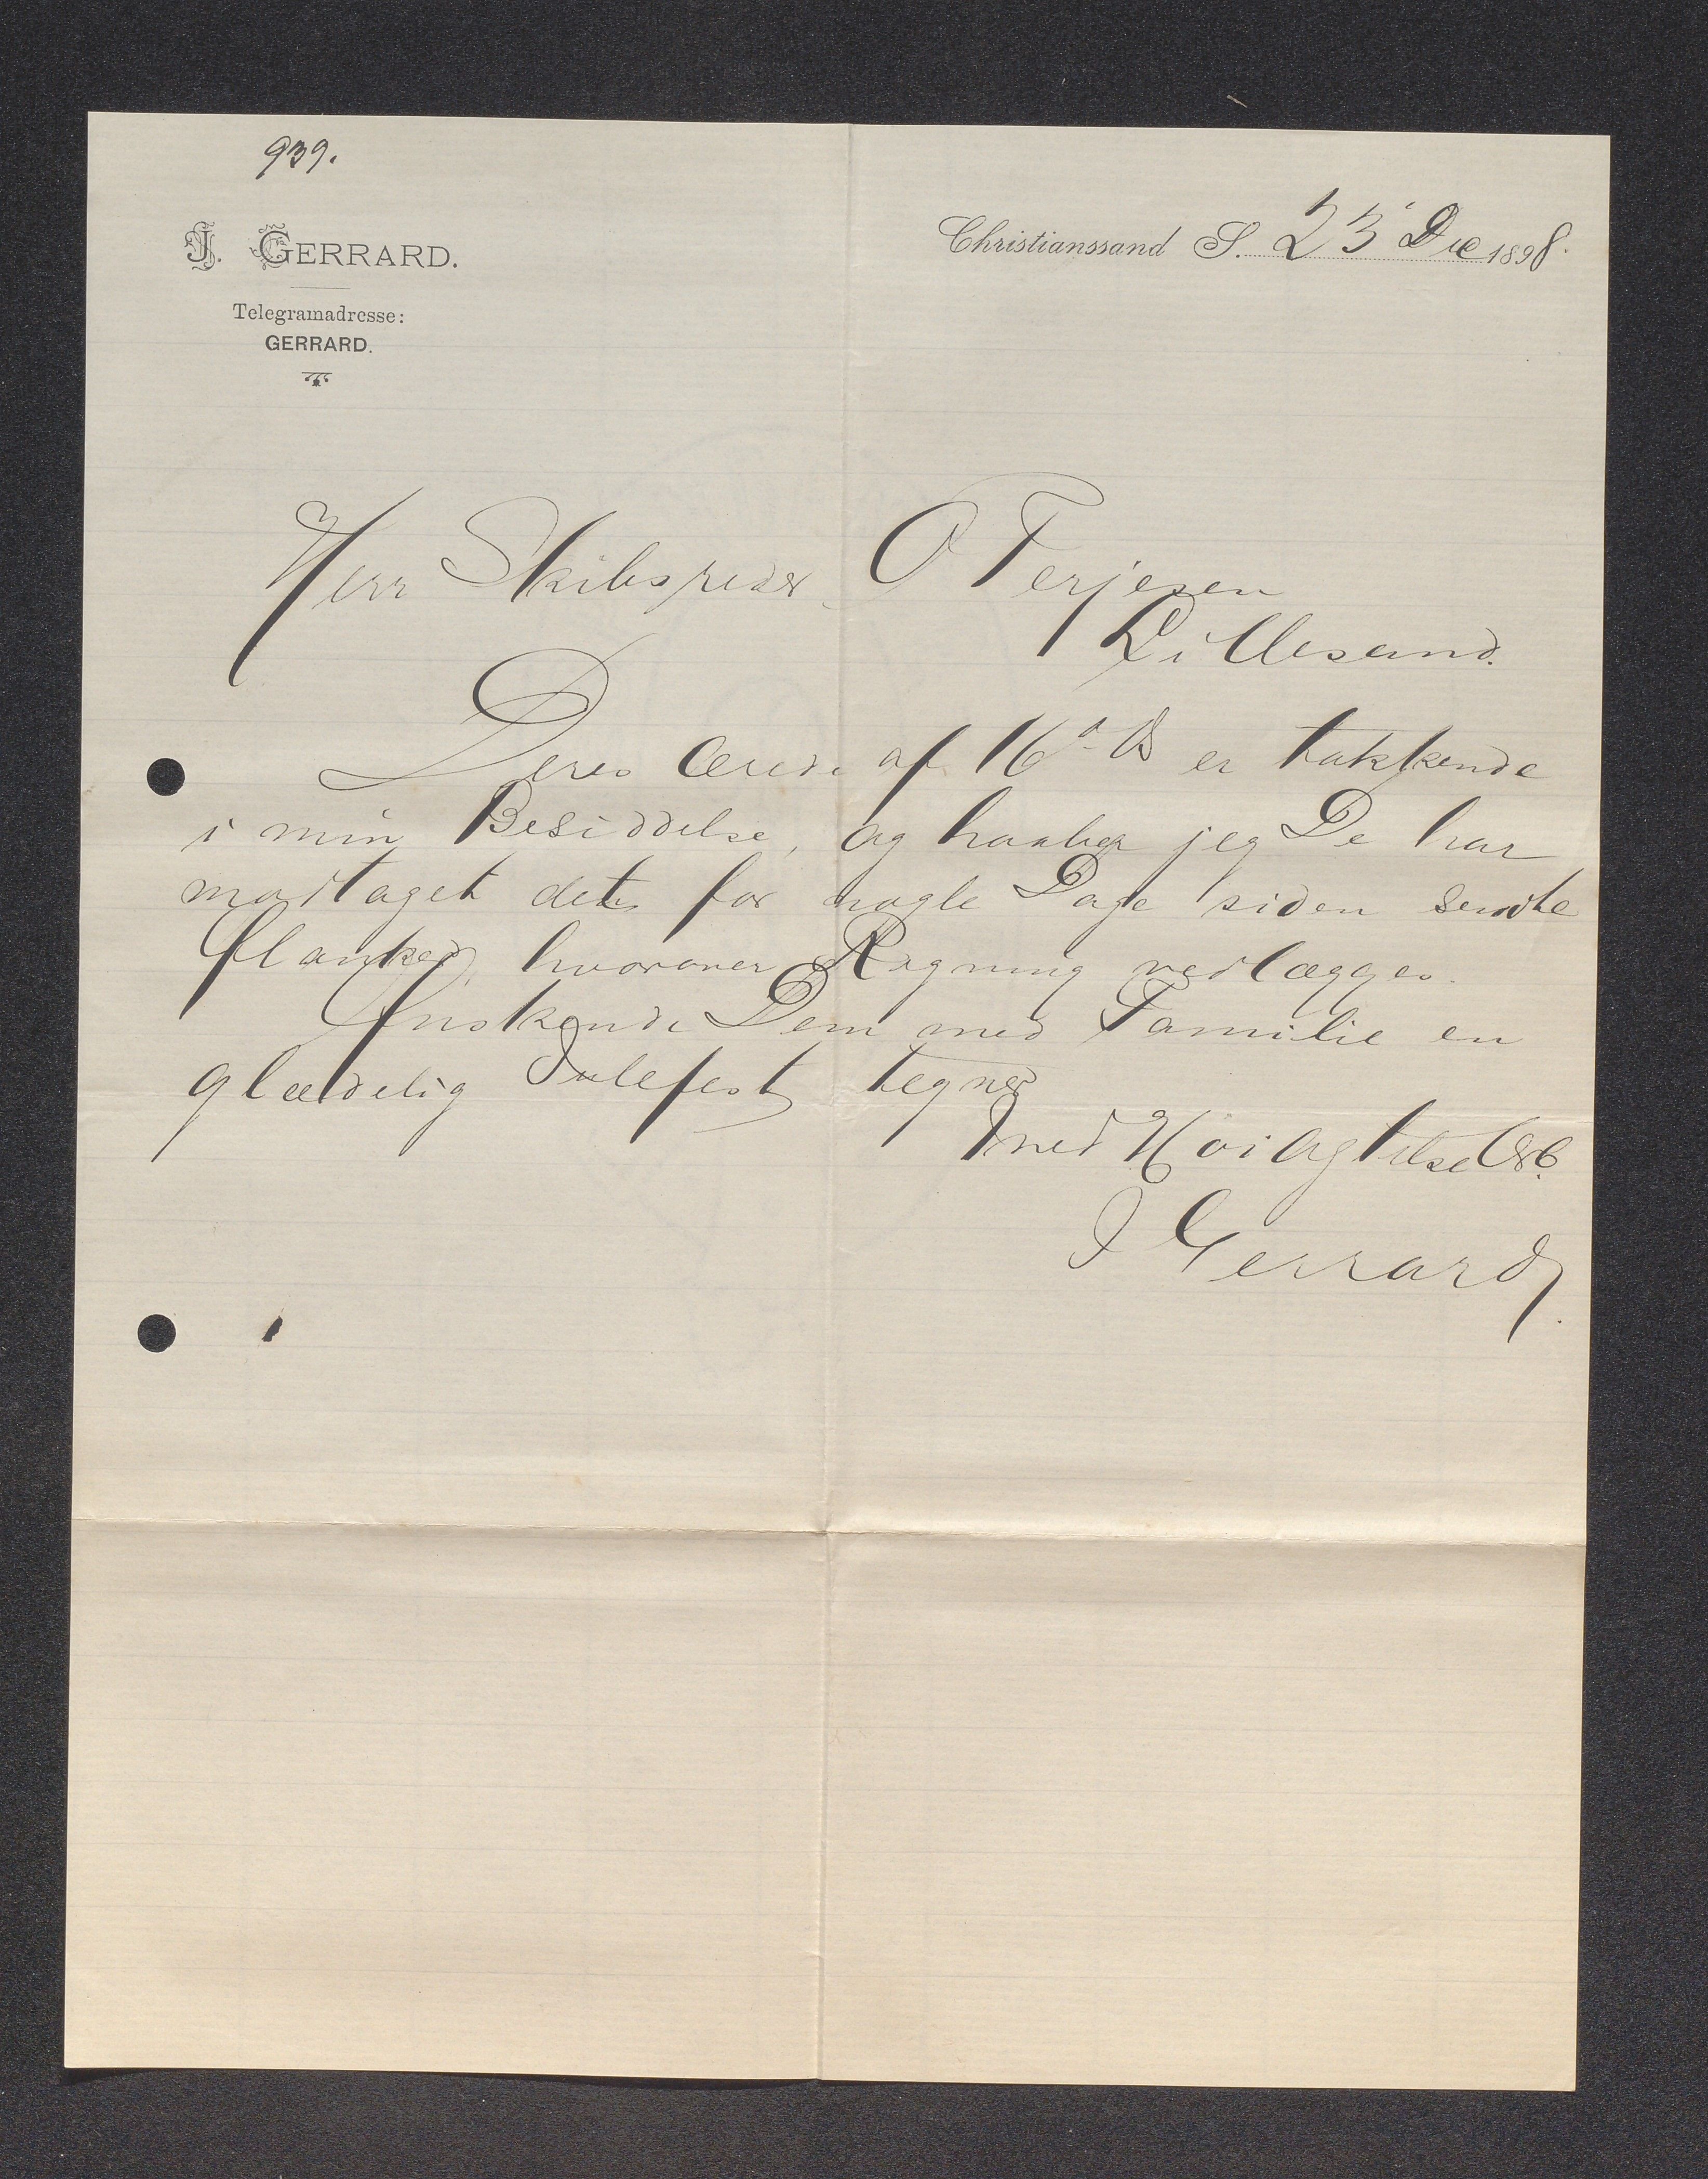 939.
J. GERRARD.
Telegramadresse:
GERRARD.
Christianssand S. 23 Dec 1898.
Herr Skibsreder O Terjesen
Lillesand.
Deres ærede af 16 ds er takkende
i min Besiddelse, og haaber jeg De har
modtaget det for nogle Dage siden sendte
flanked, hvorover Regning vedlægges.
Ønskende Dem med Familie en
glædelig Julefest tegner
med Høiagtelse
J Gerrard.